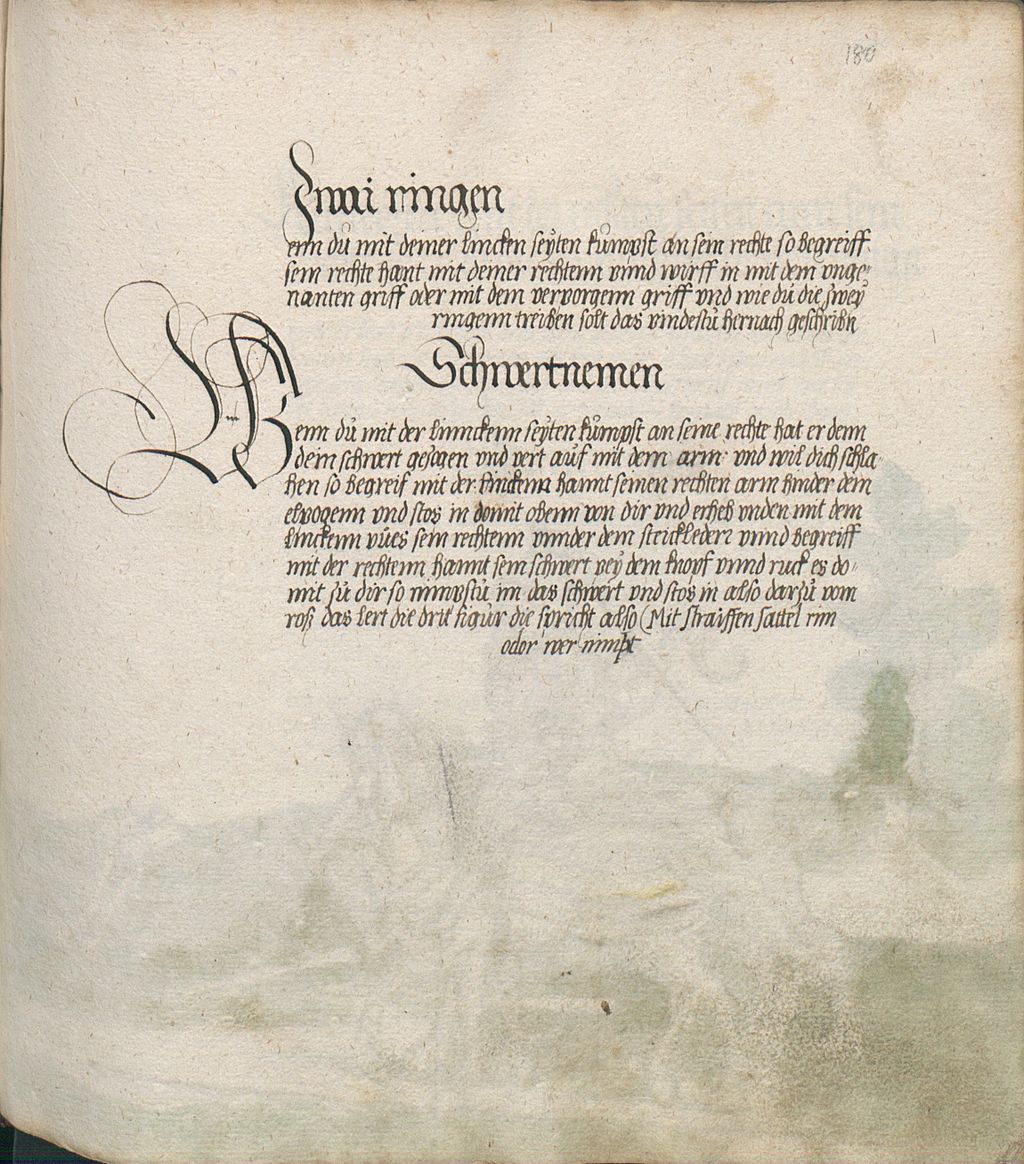 180
Zwai ringen
enn dü mit deiner lincken seÿten kůmpst an sein rechte so begreiff
sein rechte hant mit deiner rechtenn vnnd wirff in mit dem vnge-
nanten griff oder mit dem verporgenn griff vnd wie dü die zweÿ
ringenn treiben solt das vindestu hernach geschribn
Schwertnemen
W
enn dů mit der linnckenn seÿten kůmpst an seine rechte hat er denn
dein schwert gezogen vnd vert auf mit dem arm vnd wil dich schla-
hen so begreif mit der linckenn hannt seinen rechten arm hinder dem
elpogenn vnd stos in domit obenn von dir vnd erheb vnden mit dem
linckenn vůes sein rechtenn vnnder dem steickledern vnnd begreiff
mit der rechtenn hannt sein schwert peÿ dem knopf vnnd ruck es do-
mit zů dir so nimpstu im das schwert vnd stos in also darzů vom
roß das lert die drit figur die spricht also (Mit straiffen sattel rim
oder wer nimpt